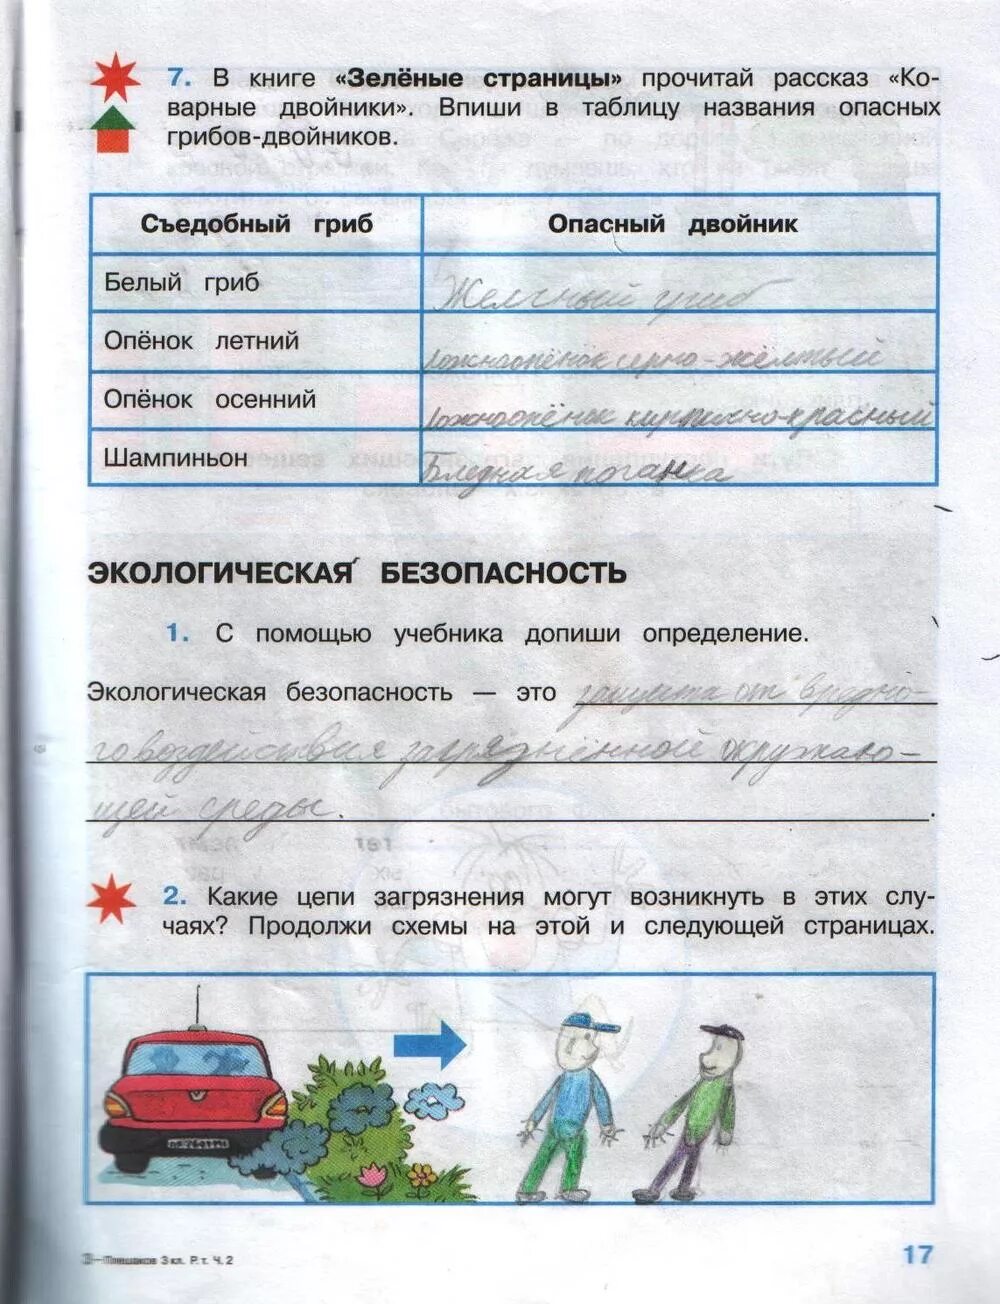 7. В книге «Зелёные страницы» прочитай рассказ «Ко-
варные двойники». Впиши в таблицу названия опасных
грибов-двойников.
Съедобный гриб Опасный двойник
Белый гриб Желчный гриб
Опёнок летний Ложноопёнок серно-жёлтый
Опёнок осенний Ложноопёнок кирпично-красный
Шампиньон Бледная поганка
ЭКОЛОГИЧЕСКАЯ БЕЗОПАСНОСТЬ
1. С помощью учебника допиши определение.
Экологическая безопасность — это защита от вредно-
го воздействия загрязнённой окружаю-
щей среды.
2. Какие цепи загрязнения могут возникнуть в этих слу-
чаях? Продолжи схемы на этой и следующей страницах.
3—Плешаков 3 кл. Р. т. Ч. 2
17